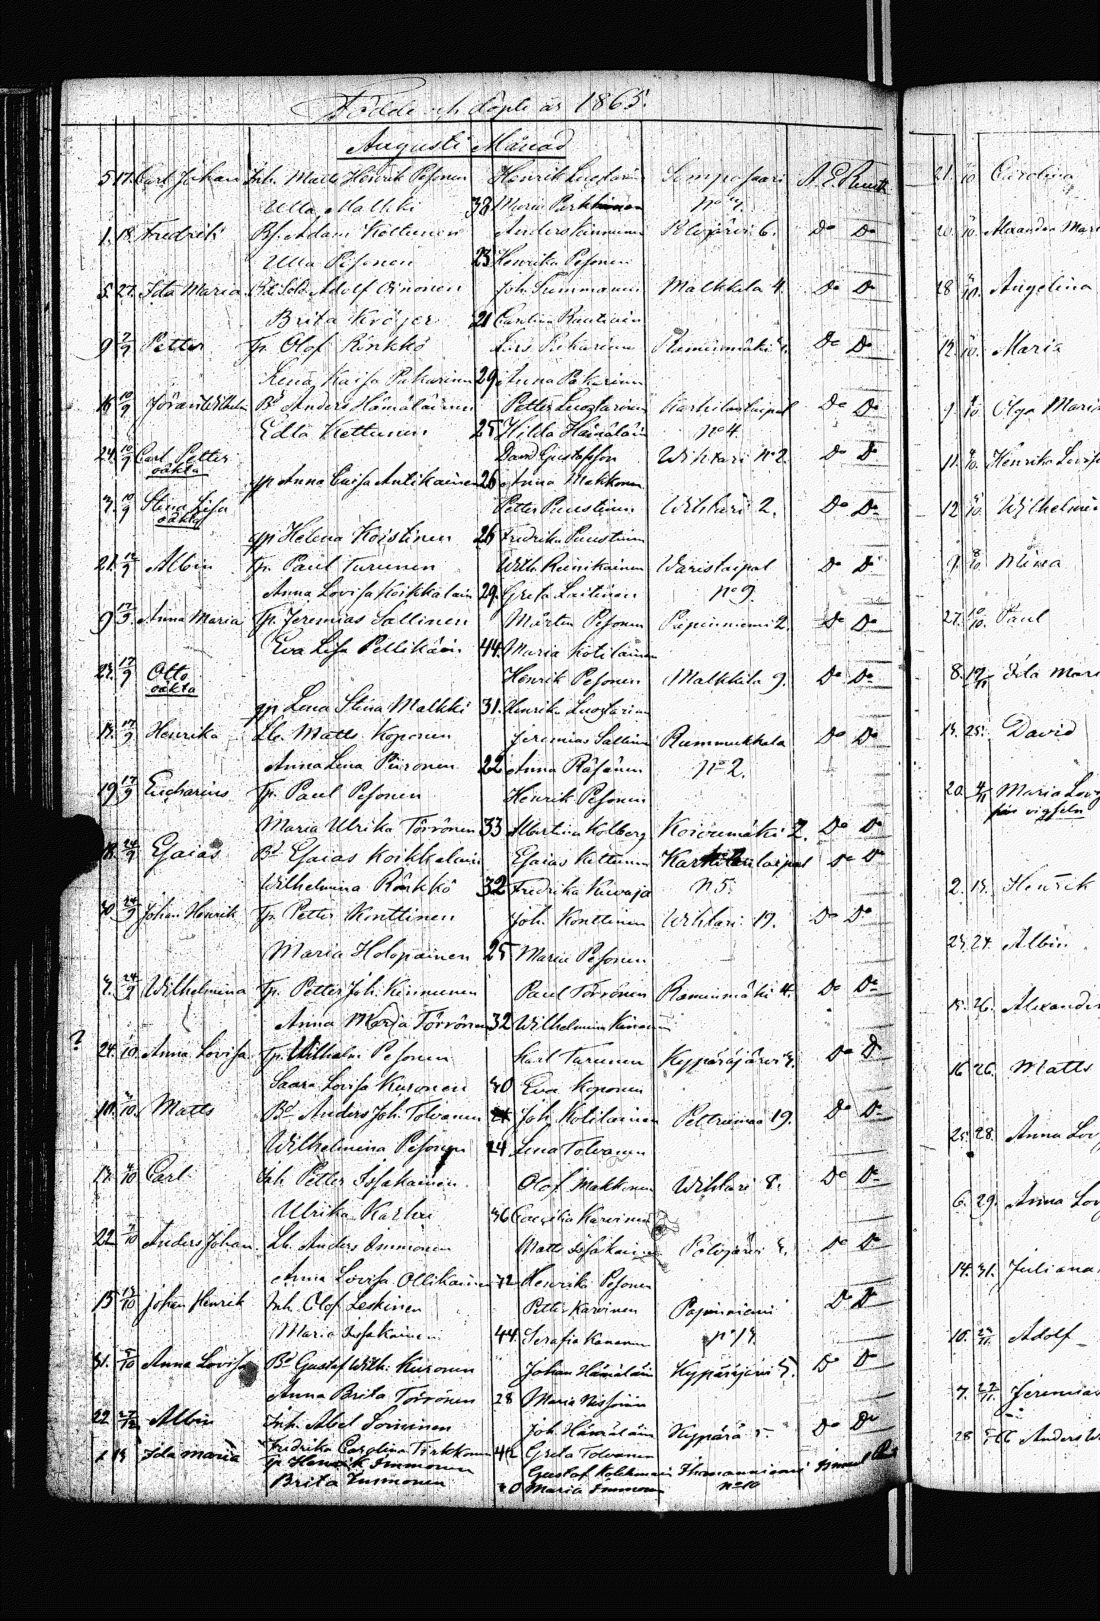 Födde och döpte år 1865.
Augusti Månad
5. 17. Carl Johan Inh. Matts Henrik Pesonen Henrik Luostarin Simposaari A. E. Ruuth
Ulla Malkki 38 Maria No 4
1. 18. Fredrik Bs. Adam Kottunen Anders Kinnunen Polvijärvi 6. Do Do
Ulla Pesonen 23 Henrika Pesonen
5. 27. Ida Maria Adolf Oinonen Joh. Summanen Malkkila 4. Do Do
Brita Kröjer 21 Carolina Rautiain
9 3/9 Petter Tp. Olof Rönkkö Lars Pekarinen Raminmäki Do Do
Lena Kaisa Pakarinen 29 Anna Pakarinen
16 10/9 Jöran Wilhelm Bd Anders Hämäläinen Petter Luostarinen Karhilanlaipal Do Do
Edla Kettunen 25 Hilda Hämäläin No 4.
24. 10/9 Carl Petter David Gustafsson Wihtari No 2. Do Do
oäkta
gp Anna Caisa Antikainen 26 Anna Makkonen
3. 10/9 Stina Lisa Petter Puustinen Wihtari 2. Do Do
oäkta
gp Helena Koistinen 26 Fredrika Puustinen
21. 12/9 Albin Tp. Paul Turunen Wilh. Reinikainen Varislaipal Do Do
Anna Lovisa Koikkalain 29. Greta Laitinen No 9.
9 17/9 Anna Maria Tp. Jeremias Sallinen Mårten Pesonen Papinniemi 2. Do Do
Eva Lisa Pellikäin 44. Maria Kotilainen
24. 17/9 Otto Henrik Pesonen Malkkila 9. Do Do
oäkta
gp Lena Stina Malkki 31. Henrika Luostarinen
14. 17/9 Henrika Lb. Matts Koponen Jeremias Sallinen Rummukkala Do Do
Anna Lena Piironen 22 Anna Räsänen No 2.
19 17/9 Eucharius Tp. Paul Pesonen Henrik Pesonen
Maria Ulrika Törrönen 33 Albertina Kolberg Koivumäki 2. Do Do
18. 24/9 Esaias Bd Esaias Koikkalain Esaias Kettunen Karhilanlaipal Do Do
Wilhelmina Rönkkö 32 Fredrika Kuvaja N 5.
30. 24/9 Johan Henrik Tp. Petter Konttinen Joh. Konttinen Wihtari 17. Do Do
Maria Holopainen 25 Maria Pesonen
4. 24/9 Wilhelmina Tp. Petter Joh. Kinnunen Paul Törrönen Raminmäki 4. Do Do
Anna Maria Törrönen 32 Wilhelmina Kinnunen
? 24. 1/10. Anna Lovisa Tp. Wilhelm Pesonen Karl Turunen Kypäräjärvi 4. Do Do
Saara Lovisa Kuronen 40 Eva Koponen
10. 1/10. Matts Bd Anders Joh. Tolvanen Joh. Kotilainen Petrumaa 19. Do Do
Wilhelmina Pesonen 24 Lena Tolvanen
1/10 Carl Inh. Petter Issakainen Olof Makkonen Wihtari 8. Do Do
Ulrika Karhu 36 Caecilia Karvinen
22 7/10 Anders Johan Lb. Anders Immonen Matts Issakainen Polvijärvi Do Do
Anna Lovisa Ollikainen 42 Henrika Pesonen
15 15/10 Johan Henrik Inh. Olof Leskinen Petter Karvinen Papinniemi Do Do
Maria Issakainen 44. Serafia Kananen No 14.
31. /10 Anna Lovisa Bd Gustaf Wilh. Kuronen Johan Hämäläin Kypäräjärvi 5. Do Do
Anna Brita Törrönen 28 Maria Nissinen
22 27/12 Albin Inh. Abel Soininen Joh. Hämäläin Kypärä Do Do
Fredrika Carolina Tirkkonen 42 Greta Tolvanen
Ida Maria Tp Henrik Immonen Gustaf Kolehmain
Brita Tuononen Maria Immonen No 10
21. Carolina
20. Alexandra Mari
28 Angelina
12. Maria
9. Olga Maria
11. Henrika Lovisa
12 Wilhelmi
9. Minna
27. Paul
8. Ida Mari
14. 25. David
20. Maria Lov
för vigseln
2. 15. Henrik
23. 24. Albin
15. 26. Alexander
16 26. Matts
25. 28. Anna Lov
6. 29. Anna Lov
14. 31. Juliana
10. Adolf
7. Jeremias
28 Anders W